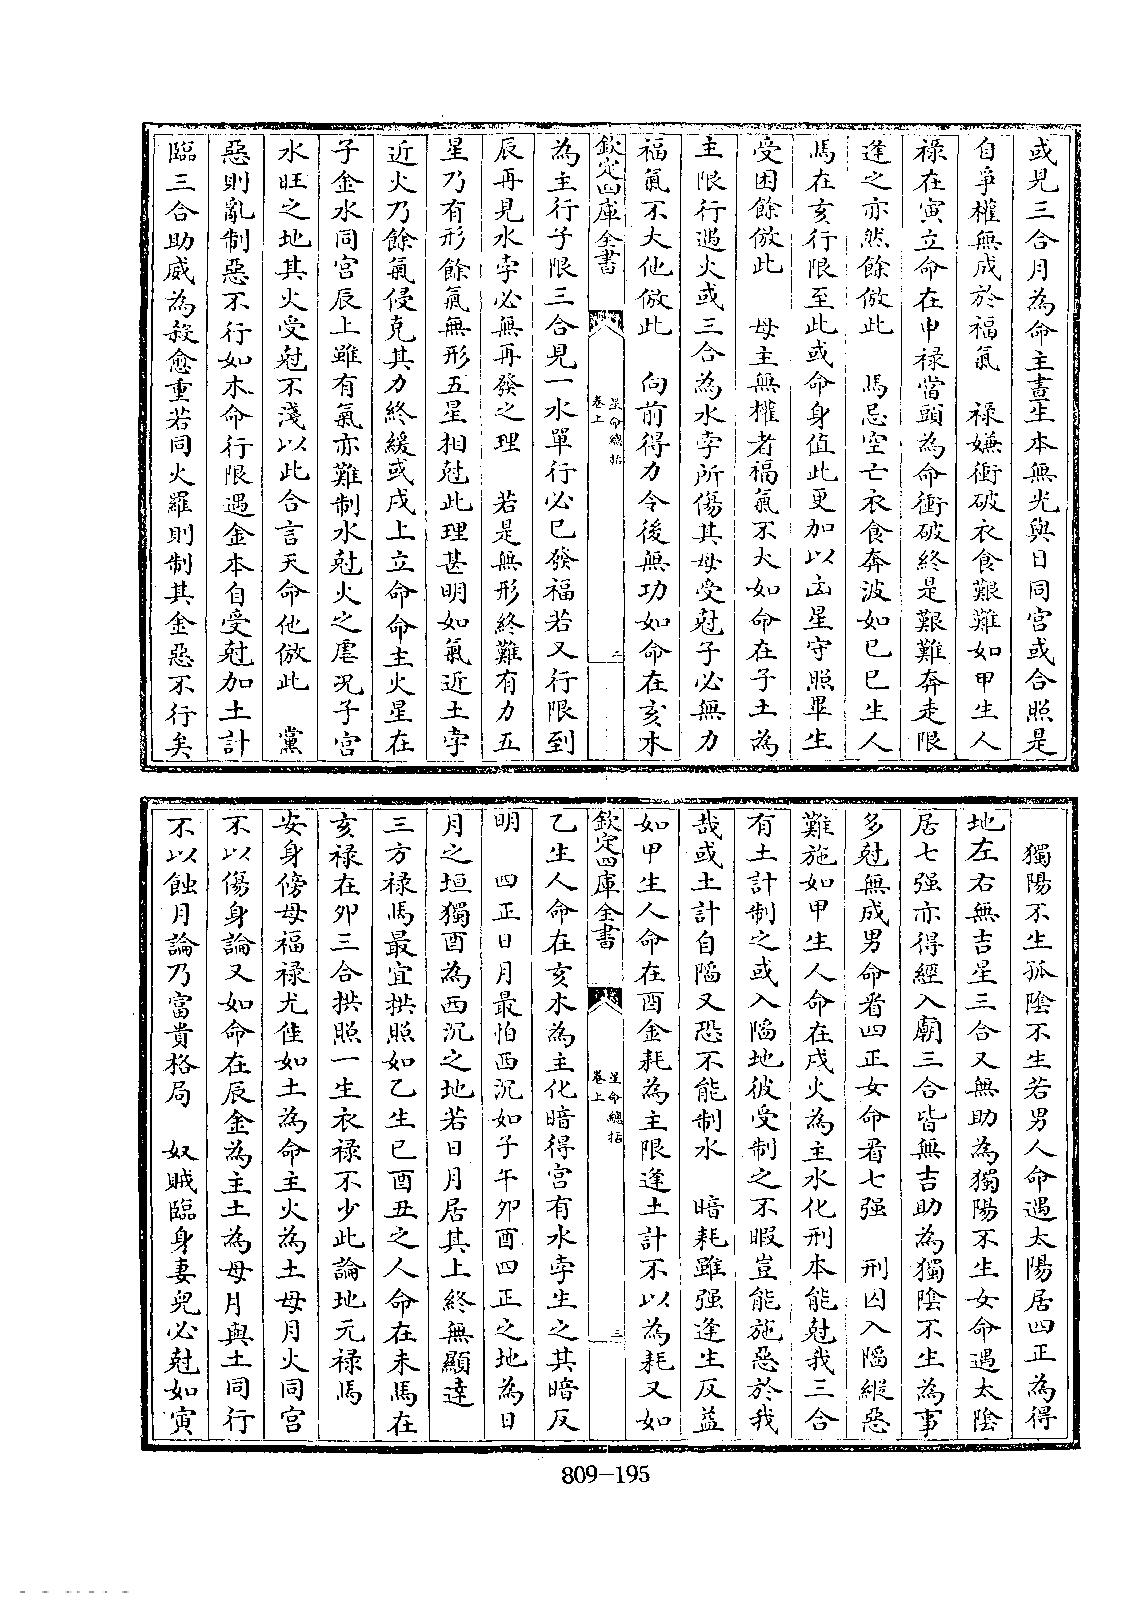 或見三合月為命主晝生本無光與日同宮或合照是
自爭權無成於福氣　祿嫌衝破衣食艱難如甲生人
祿在寅立命在申祿當頭為命衝破終是艱難奔走限
逢之亦然餘倣此　馬忌空亡衣食奔波如己巳生人
馬在亥行限至此或命身值此更加以凶星守照畢生
受困餘倣此　母主無權者福氣不大如命在子土為
主限行遇火或三合為水孛所傷其母受尅子必無力
福氣不大他倣此　向前得力令後無功如命在亥木
欽定四庫全書
星命總括
卷上
二
為主行子限三合見一水單行必已發福若又行限到
辰再見水孛必無再發之理　若是無形終難有力五
星乃有形餘氣無形五星相尅此理甚明如氣近土孛
近火乃餘氣侵克其力終緩或戌上立命命主火星在
子金水同宮辰上雖有氣亦難制水尅火之虐况子宮
水旺之地其火受尅不淺以此合言天命他倣此　黨
惡則亂制惡不行如木命行限遇金本自受尅加土計
臨三合助威為殺愈重若同火羅則制其金惡不行矣
獨陽不生孤陰不生若男人命遇太陽居四正為得
地左右無吉星三合又無助為獨陽不生女命遇太陰
居七强亦得經入廟三合皆無吉助為獨陰不生為事
多尅無成男命看四正女命看七强　刑囚入陷縱惡
難施如甲生人命在戌火為主水化刑本能尅我三合
有土計制之或入陷地彼受制之不暇豈能施惡於我
哉或土計自陷又恐不能制水　暗耗雖强逢生反益
如甲生人命在酉金耗為主限逢土計不以為耗又如
欽定四庫全書
星命總括
卷上
三
乙生人命在亥水為主化暗得宮有水孛生之其暗反
明　四正日月最怕西沉如子午卯酉四正之地為日
月之垣獨酉為西沉之地若日月居其上終無顯達
三方祿馬最宜拱照如乙生巳酉丑之人命在未馬在
亥祿在卯三合拱照一生衣祿不少此論地元祿馬
安身傍母福祿尤佳如土為命主火為土母月火同宮
不以傷身論又如命在辰金為主土為母月與土同行
不以蝕月論乃富貴格局　奴賊臨身妻兒必尅如寅
809-195